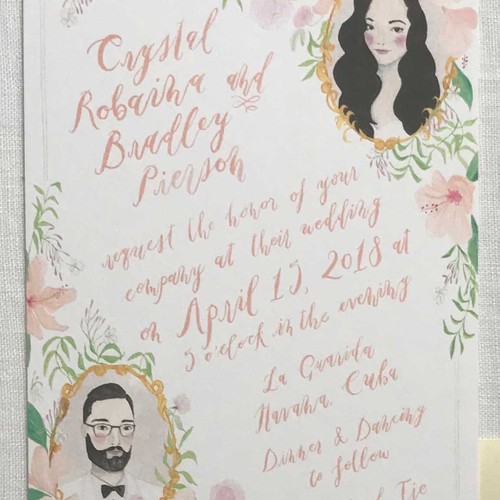 Crystal
Robaina and
Bradley
Pierson
request the honor of your
company at their wedding
on April 15, 2018 at
5 o'clock in the evening
La Guarida
Havana, Cuba
Dinner & Dancing
to follow
Tie